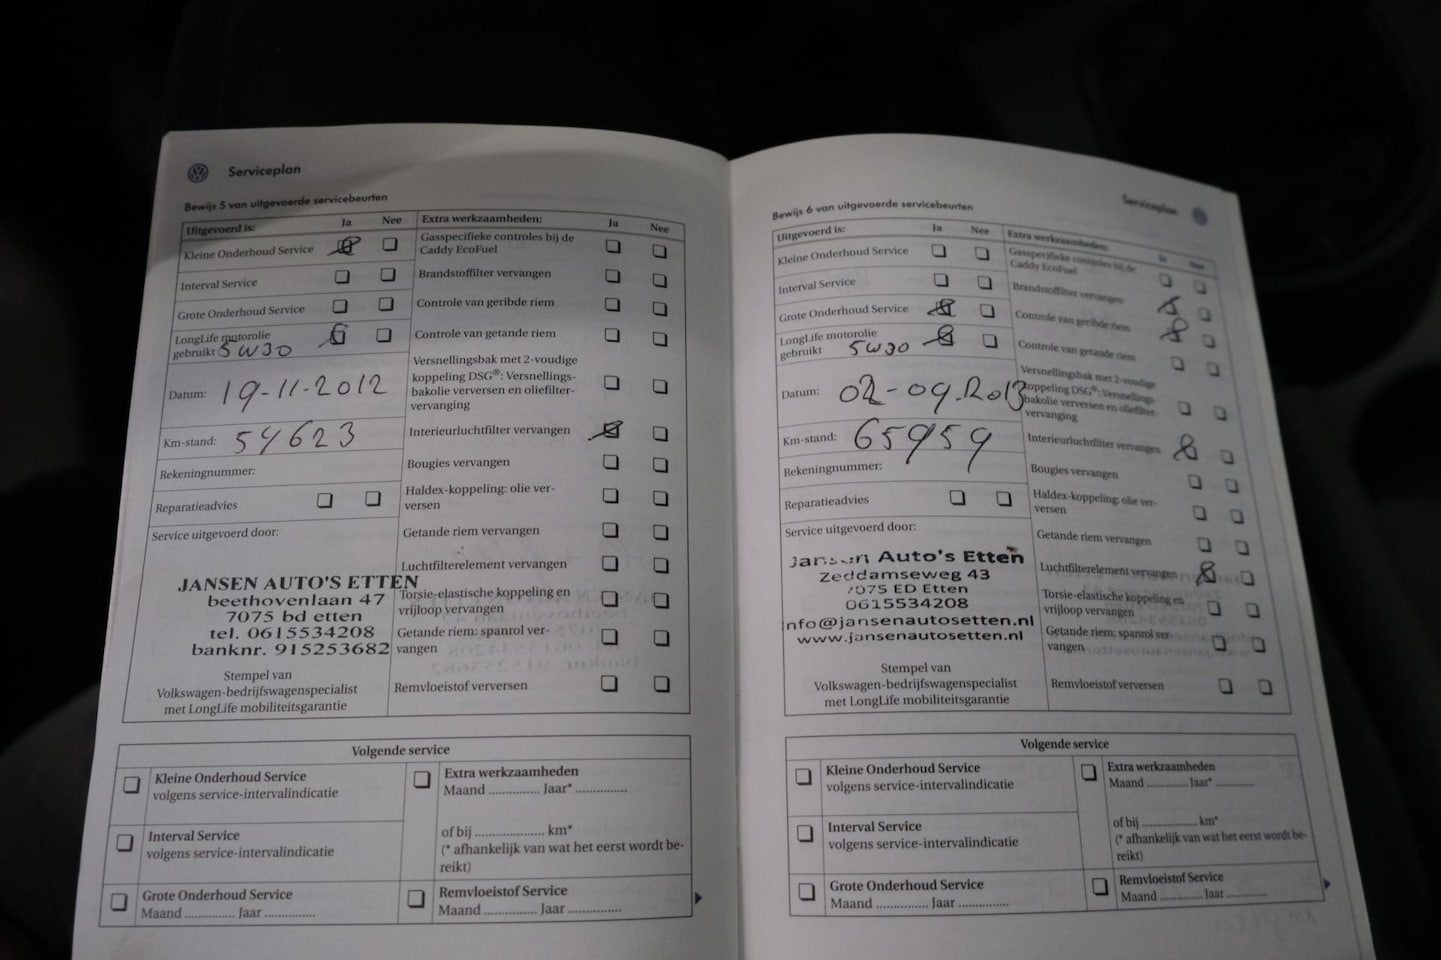 Serviceplan
Bewijs 5 van uitgevoerde servicebeurten
Uitgevoerd is: Ja Nee
Kleine Onderhoud Service
Interval Service
Grote Onderhoud Service
LongLife motorolie
gebruikt 5W30
Datum: 19-11-2012
Km-stand: 54623
Rekeningnummer:
Reparatieadvies
Service uitgevoerd door:
JANSEN AUTO'S ETTEN
beethovenlaan 47
7075 bd etten
tel. 0615534208
banknr. 915253682
Stempel van
Volkswagen-bedrijfswagenspecialist
met LongLife mobiliteitsgarantie
Extra werkzaamheden: Ja Nee
Gasspecifieke controles bij de
Caddy EcoFuel
Brandstoffilter vervangen
Controle van geribde riem
Controle van getande riem
Versnellingsbak met 2-voudige
koppeling DSG®: Versnellings-
bakolie verversen en oliefilter-
vervanging
Interieurluchtfilter vervangen
Bougies vervangen
Haldex-koppeling: olie ver-
versen
Getande riem vervangen
Luchtfilterelement vervangen
Torsie-elastische koppeling en
vrijloop vervangen
Getande riem: spanrol ver-
vangen
Remvloeistof verversen
Volgende service
Kleine Onderhoud Service
volgens service-intervalindicatie
Interval Service
volgens service-intervalindicatie
Grote Onderhoud Service
Maand .............. Jaar ..............
Extra werkzaamheden
Maand .............. Jaar* ..............
of bij ................... km*
(* afhankelijk van wat het eerst wordt be-
reikt)
Remvloeistof Service
Maand .............. Jaar ..............
Serviceplan
Bewijs 6 van uitgevoerde servicebeurten
Uitgevoerd is: Ja Nee
Kleine Onderhoud Service
Interval Service
Grote Onderhoud Service
LongLife motorolie
gebruikt 5W30
Datum: 02-09.2013
Km-stand: 65959
Rekeningnummer:
Reparatieadvies
Service uitgevoerd door:
Jansen Auto's Etten
Zeddamseweg 43
7075 ED Etten
0615534208
info@jansenautosetten.nl
www.jansenautosetten.nl
Stempel van
Volkswagen-bedrijfswagenspecialist
met LongLife mobiliteitsgarantie
Extra werkzaamheden: Ja Nee
Gasspecifieke controles bij de
Caddy EcoFuel
Brandstoffilter vervangen
Controle van geribde riem
Controle van getande riem
Versnellingsbak met 2-voudige
koppeling DSG®: Versnellings-
bakolie verversen en oliefilter-
vervanging
Interieurluchtfilter vervangen
Bougies vervangen
Haldex-koppeling: olie ver-
versen
Getande riem vervangen
Luchtfilterelement vervangen
Torsie-elastische koppeling en
vrijloop vervangen
Getande riem: spanrol ver-
vangen
Remvloeistof verversen
Volgende service
Kleine Onderhoud Service
volgens service-intervalindicatie
Interval Service
volgens service-intervalindicatie
Grote Onderhoud Service
Maand .............. Jaar ..............
Extra werkzaamheden
Maand .............. Jaar* ..............
of bij ................... km*
(* afhankelijk van wat het eerst wordt be-
reikt)
Remvloeistof Service
Maand .............. Jaar ..............